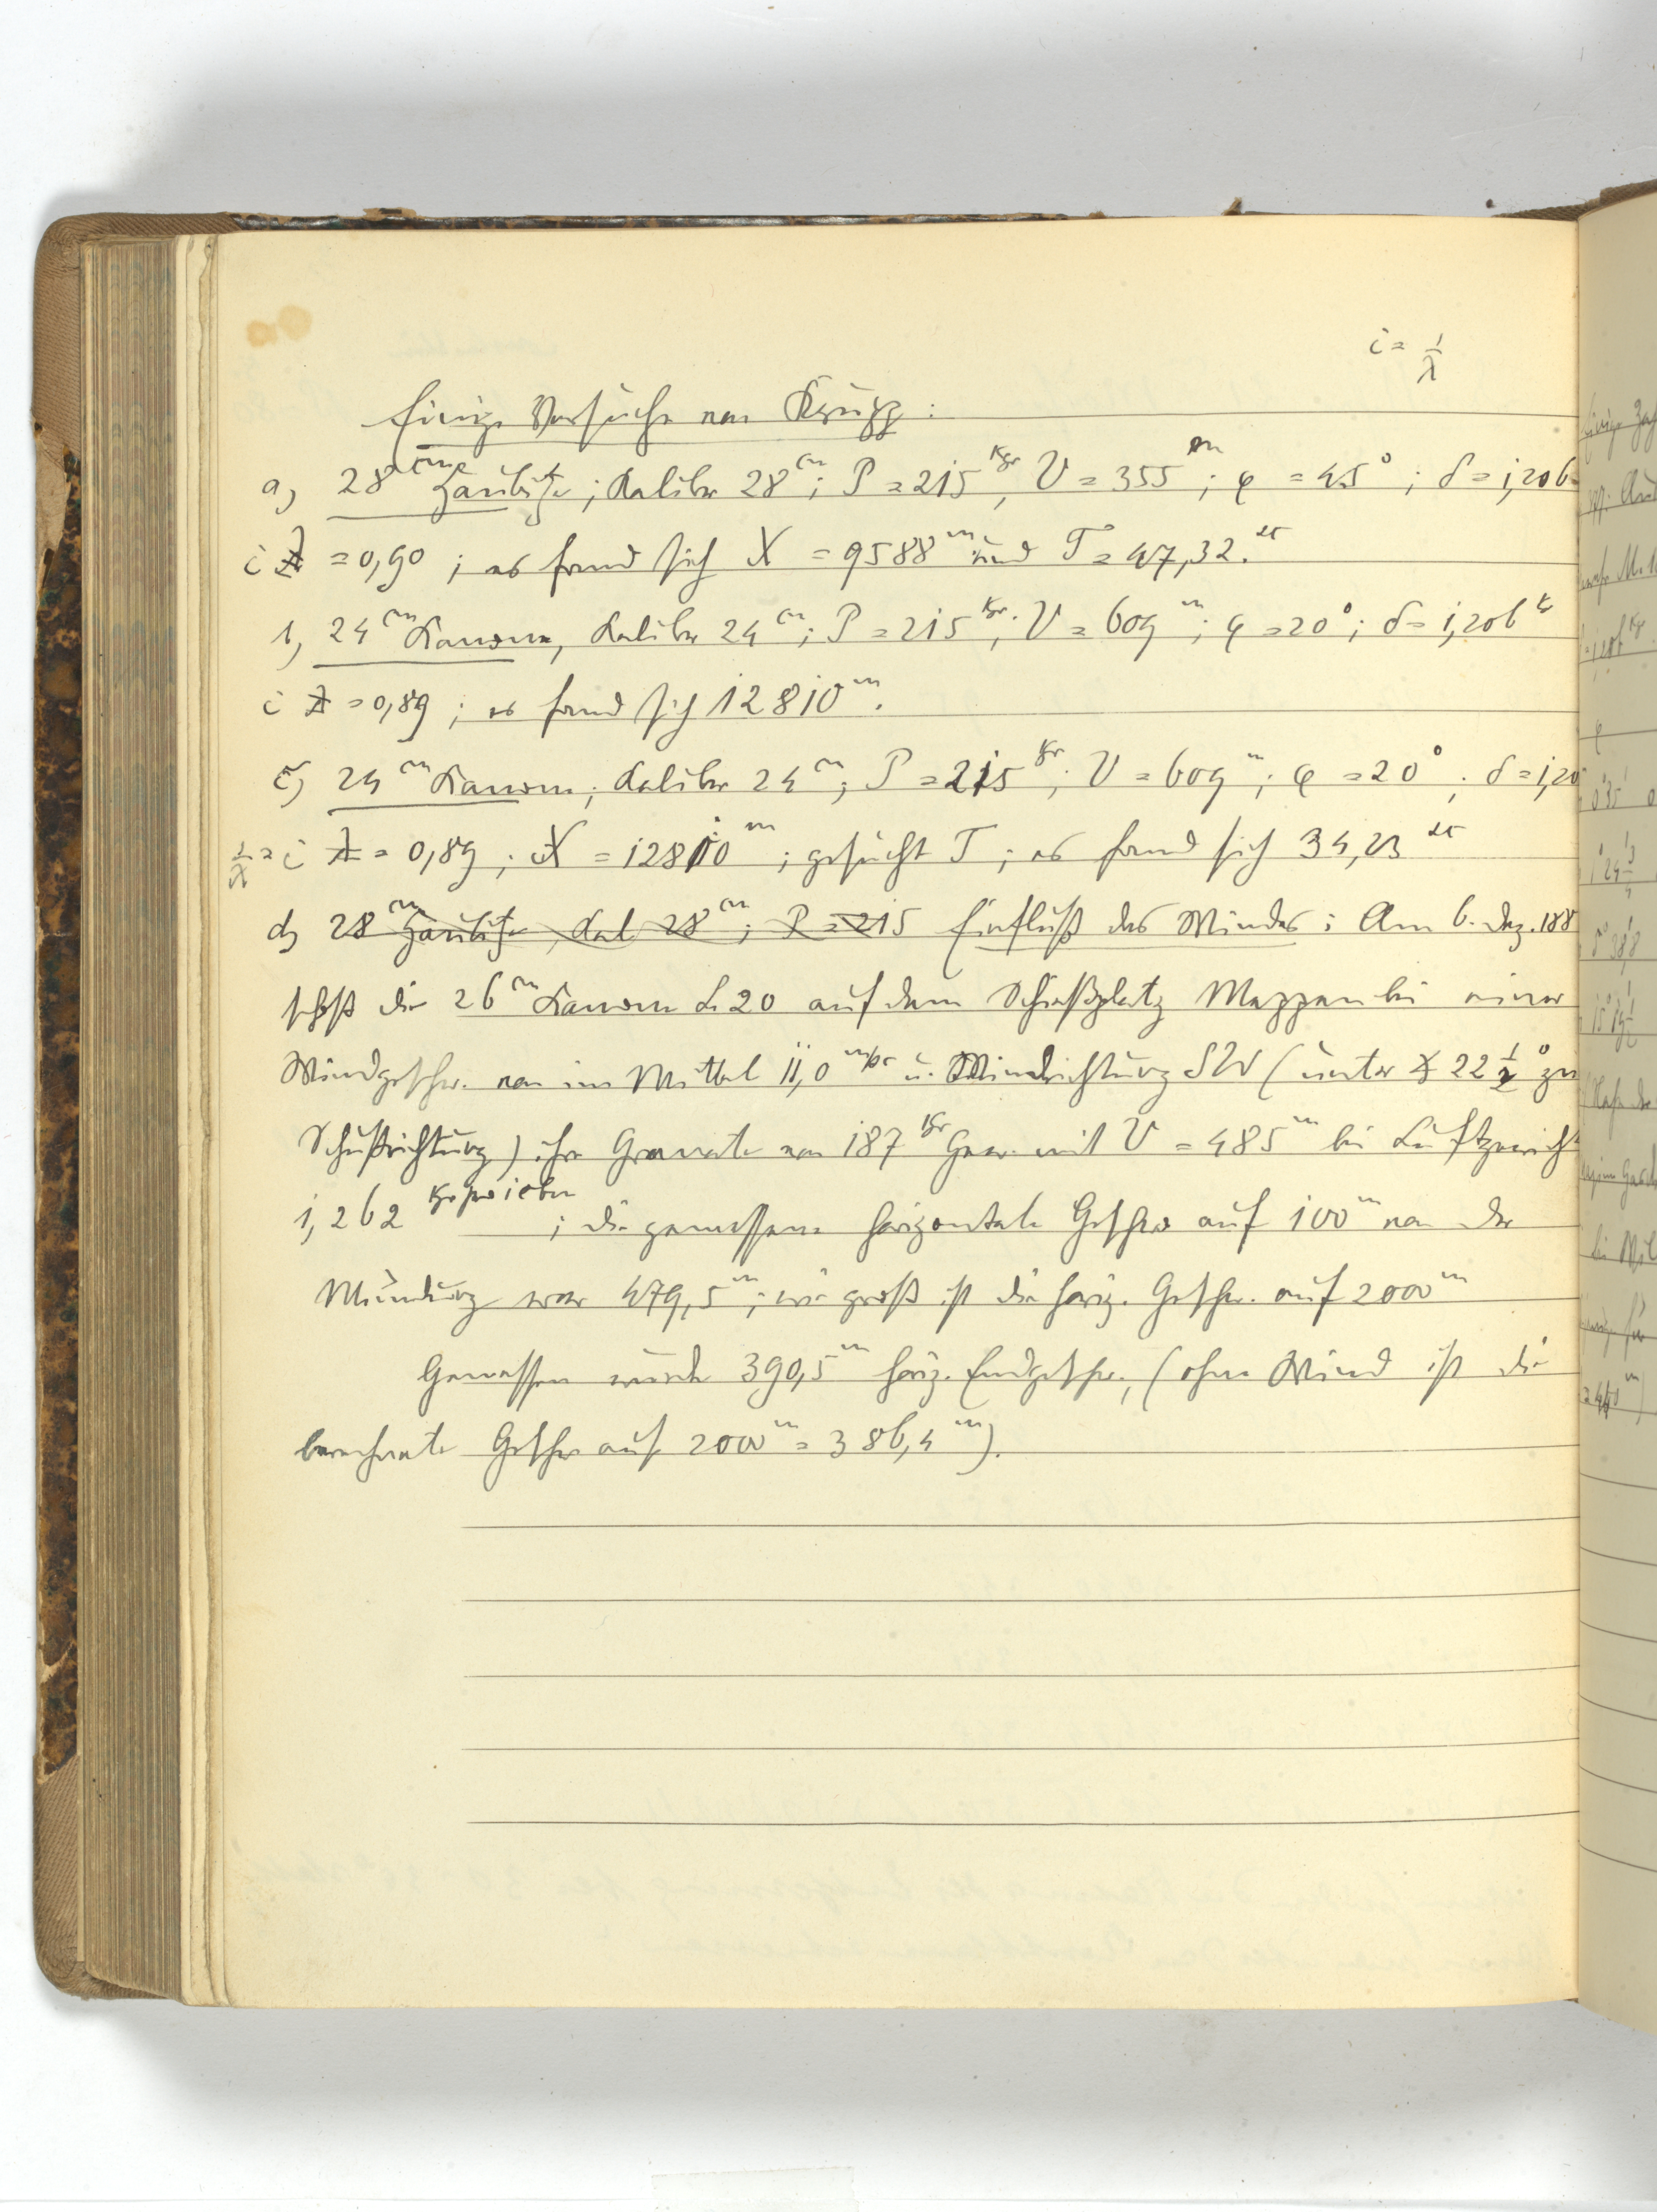 i = 1/λ
Einige Versuche von Krupp:
a) 28 cm Haubitze; Kaliber 28 cm; P = 215 Kgr, V = 355 m; φ = 45°; δ = 1,206
i = 0,90; es fand sich X = 9588 m und T = 47,32 sec
b) 24 cm Kanone, Kaliber 24 cm; P = 215 Kgr; V = 609 m; φ = 20°; δ = 1,206 K
i = 0,89; es fand sich 12810 m.
c) 24 cm Kanone; Kaliber 24 cm; P = 215 Kgr; V = 609 m; φ = 20°; δ = 1,20
1/λ = i = 0,89; X = 12810 m; gesucht T; es fand sich 34,23 sec
d) 28 cm Haubitze, Kal 28 cm; P = 215 Einfluß des Windes: Am 6. Dez. 188
schoß die 26 cm Kanone L 20 auf dem Schießplatz Meppen bei einer
Windgeschw. von im Mittel 11,0 m/sec u. Windrichtung SW (unter ∡ 22 1/2° zur
Schußrichtung) ihre Granate von 187 Kgr Gew. mit V = 485 m bei Luftgewicht
1,262 Kgr pro cbm; die gemessene horizontale Geschw auf 100 m von der
Mündung war 479,5 m; wie groß ist die horiz. Geschw. auf 2000 m
Gemessen wurde 390,5 m horiz. Endgeschw., (ohne Wind ist die
berechnete Geschw auf 2000 m = 386,4 m).